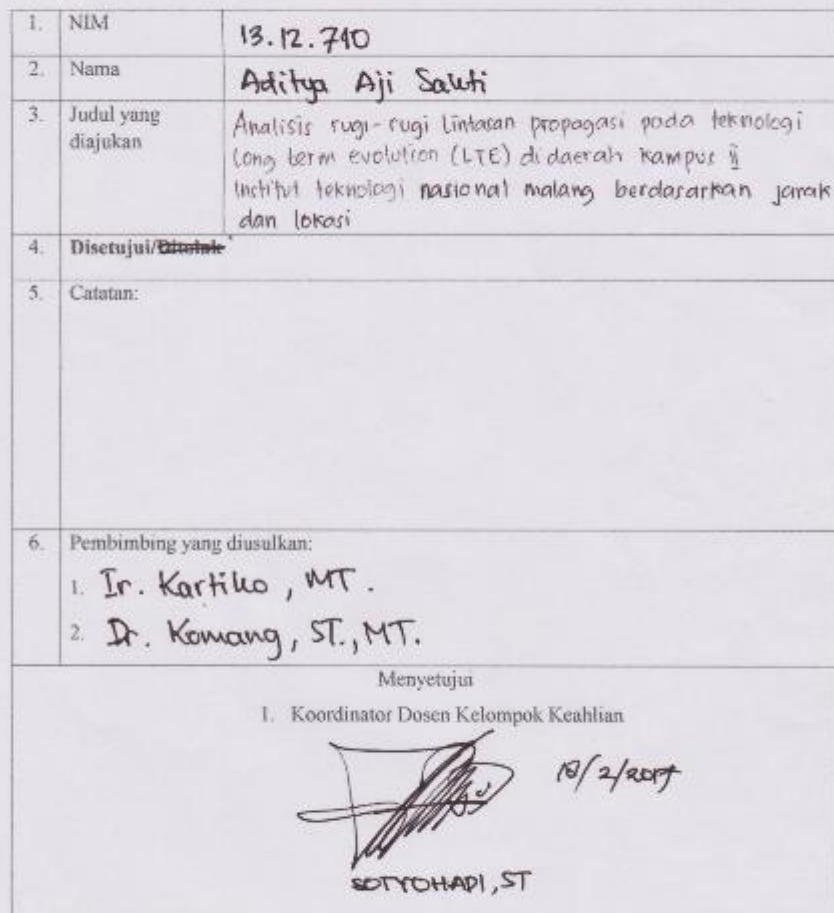 1. NIM 13.12.710
2. Nama Aditya Aji Sakti
3. Judul yang diajukan
Analisis rugi-rugi Lintasan propagasi pada teknologi
Long term evolution (LTE) di daerah kampus ii
Institut teknologi nasional malang berdasarkan jarak
dan lokasi
4. Disetujui/Ditolak
5. Catatan:
6. Pembimbing yang diusulkan:
1. Ir. Kartiko, MT.
2. Dr. Komang, ST., MT.
Menyetujui
1. Koordinator Dosen Kelompok Keahlian
SOTYOHADI, ST